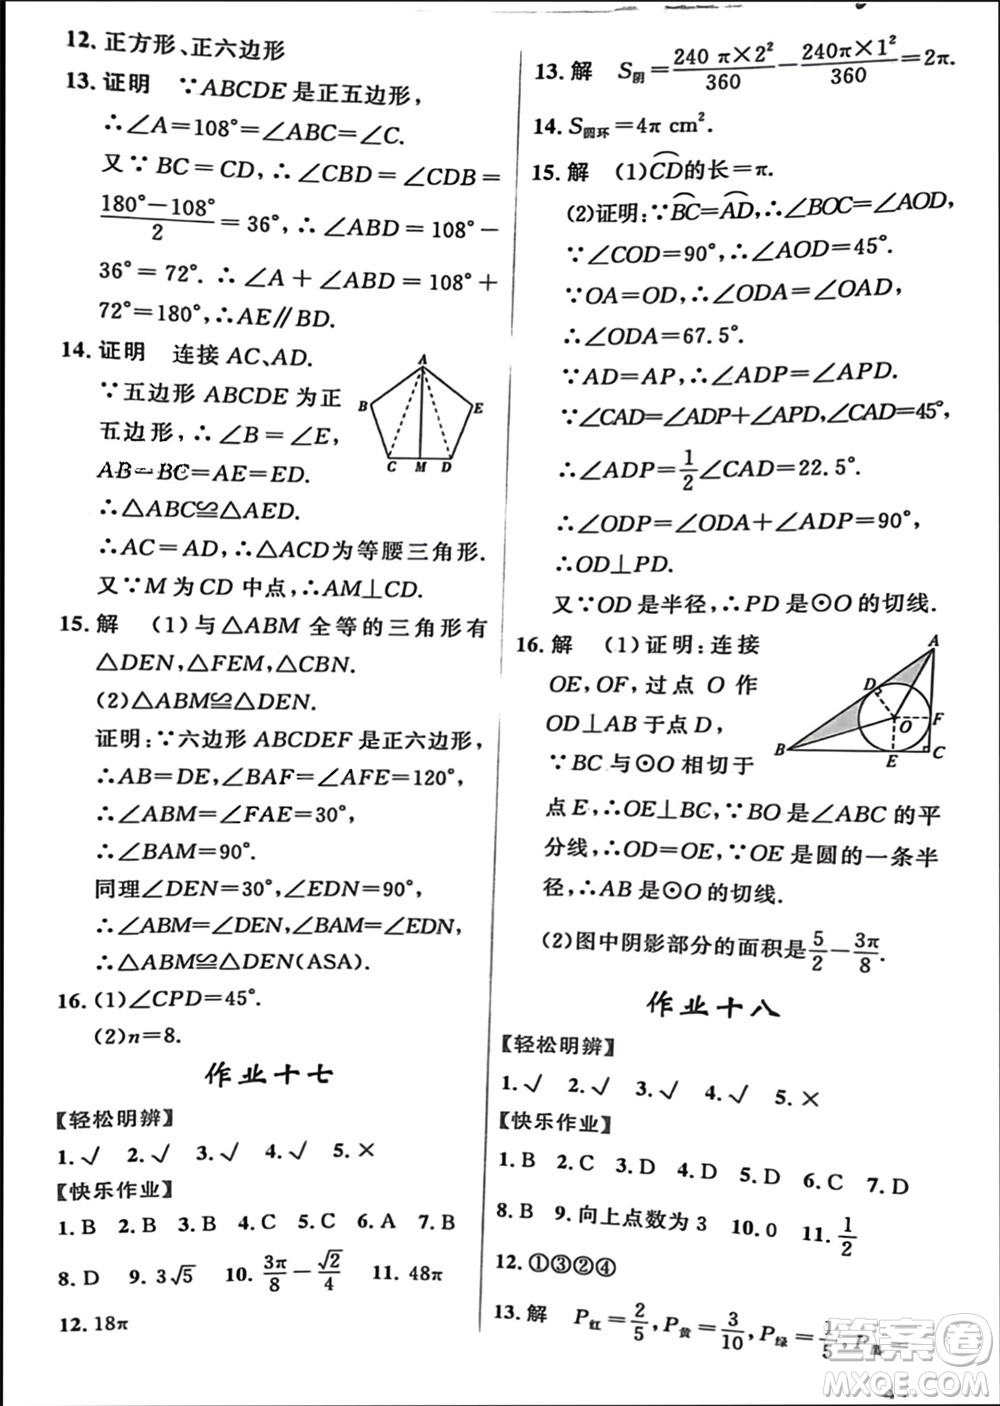 12. 正方形、正六边形
13. 证明 ∵ABCDE 是正五边形，
∴∠A=108°=∠ABC=∠C.
又∵BC=CD，∴∠CBD=∠CDB=
(180°−108°)/2=36°，∴∠ABD=108°−
36°=72°. ∴∠A+∠ABD=108°+
72°=180°，∴AE∥BD.
14. 证明 连接 AC、AD.
∵五边形 ABCDE 为正
五边形，∴∠B=∠E，
AB=BC=AE=ED.
∴△ABC≌△AED.
∴AC=AD，∴△ACD为等腰三角形.
又∵M 为 CD 中点，∴AM⊥CD.
A
B
E
C
M
D
15. 解 (1)与△ABM 全等的三角形有
△DEN，△FEM，△CBN.
(2)△ABM≌△DEN.
证明：∵六边形 ABCDEF 是正六边形，
∴AB=DE，∠BAF=∠AFE=120°，
∴∠ABM=∠FAE=30°，
∴∠BAM=90°.
同理∠DEN=30°，∠EDN=90°，
∴∠ABM=∠DEN，∠BAM=∠EDN，
∴△ABM≌△DEN(ASA).
16. (1)∠CPD=45°.
(2)n=8.
作业十七
【轻松明辨】
1. √ 2. √ 3. √ 4. √ 5. ×
【快乐作业】
1. B 2. B 3. B 4. C 5. C 6. A 7. B
8. D 9. 3√5 10. 3π/8−√2/4 11. 48π
12. 18π
13. 解 S阴=(240π×2²)/360−(240π×1²)/360=2π.
14. S圆环=4π cm².
15. 解 (1)⌒CD的长=π.
(2)证明：∵⌒BC=⌒AD，∴∠BOC=∠AOD，
∵∠COD=90°，∴∠AOD=45°.
∵OA=OD，∴∠ODA=∠OAD，
∴∠ODA=67.5°.
∵AD=AP，∴∠ADP=∠APD.
∵∠CAD=∠ADP+∠APD，∠CAD=45°，
∴∠ADP=1/2∠CAD=22.5°.
∴∠ODP=∠ODA+∠ADP=90°，
∴OD⊥PD.
又∵OD 是半径，∴PD 是⊙O 的切线.
16. 解 (1)证明：连接
OE，OF，过点 O 作
OD⊥AB 于点 D，
∵BC 与⊙O 相切于
点 E，∴OE⊥BC，∵BO 是∠ABC 的平
分线，∴OD=OE，∵OE 是圆的一条半
径，∴AB 是⊙O 的切线.
A
D
O
F
B
E
C
(2)图中阴影部分的面积是5/2−3π/8.
作业十八
【轻松明辨】
1. √ 2. √ 3. √ 4. √ 5. ×
【快乐作业】
1. B 2. C 3. D 4. D 5. D 6. C 7. D
8. B 9. 向上点数为 3 10. 0 11. 1/2
12. ①③②④
13. 解 P红=2/5，P黄=3/10，P绿=1/5，P黑=
答案卷
MXQE.COM